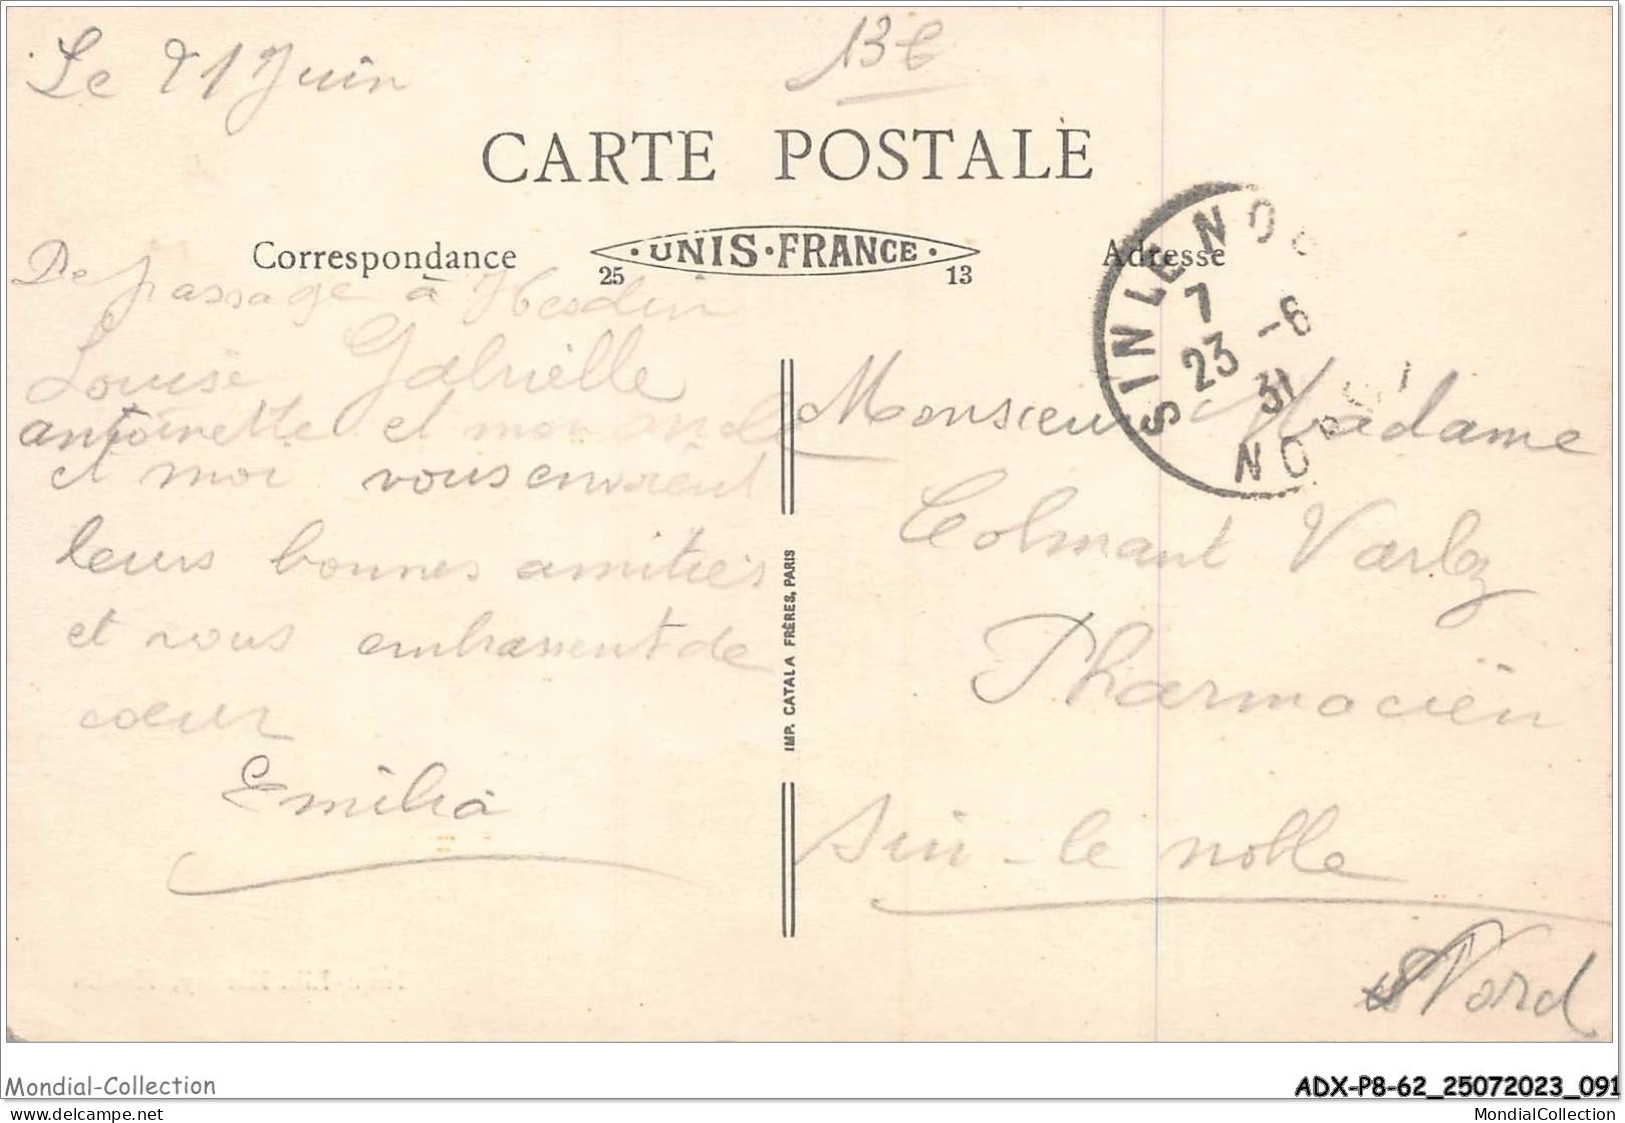 Le 21 Juin
13 €
CARTE POSTALE
Correspondance
· UNIS · FRANCE ·
25 13
Adresse
SIN LE NOB
7
23 -6
31
NORD
De passage à Hesdin
Louise Gabrielle
antoinette et mon oncle
et moi vous envoient
leurs bonnes amitiés
et vous embrassent de
cœur
Emilia
IMP. CATALA FRÈRES, PARIS
Monsieur Madame
Colmant Varlez
Pharmacien
Sin-le noble
Nord
Mondial-Collection
ADX-P8-62_25072023_091
www.delcampe.net
MondialCollection